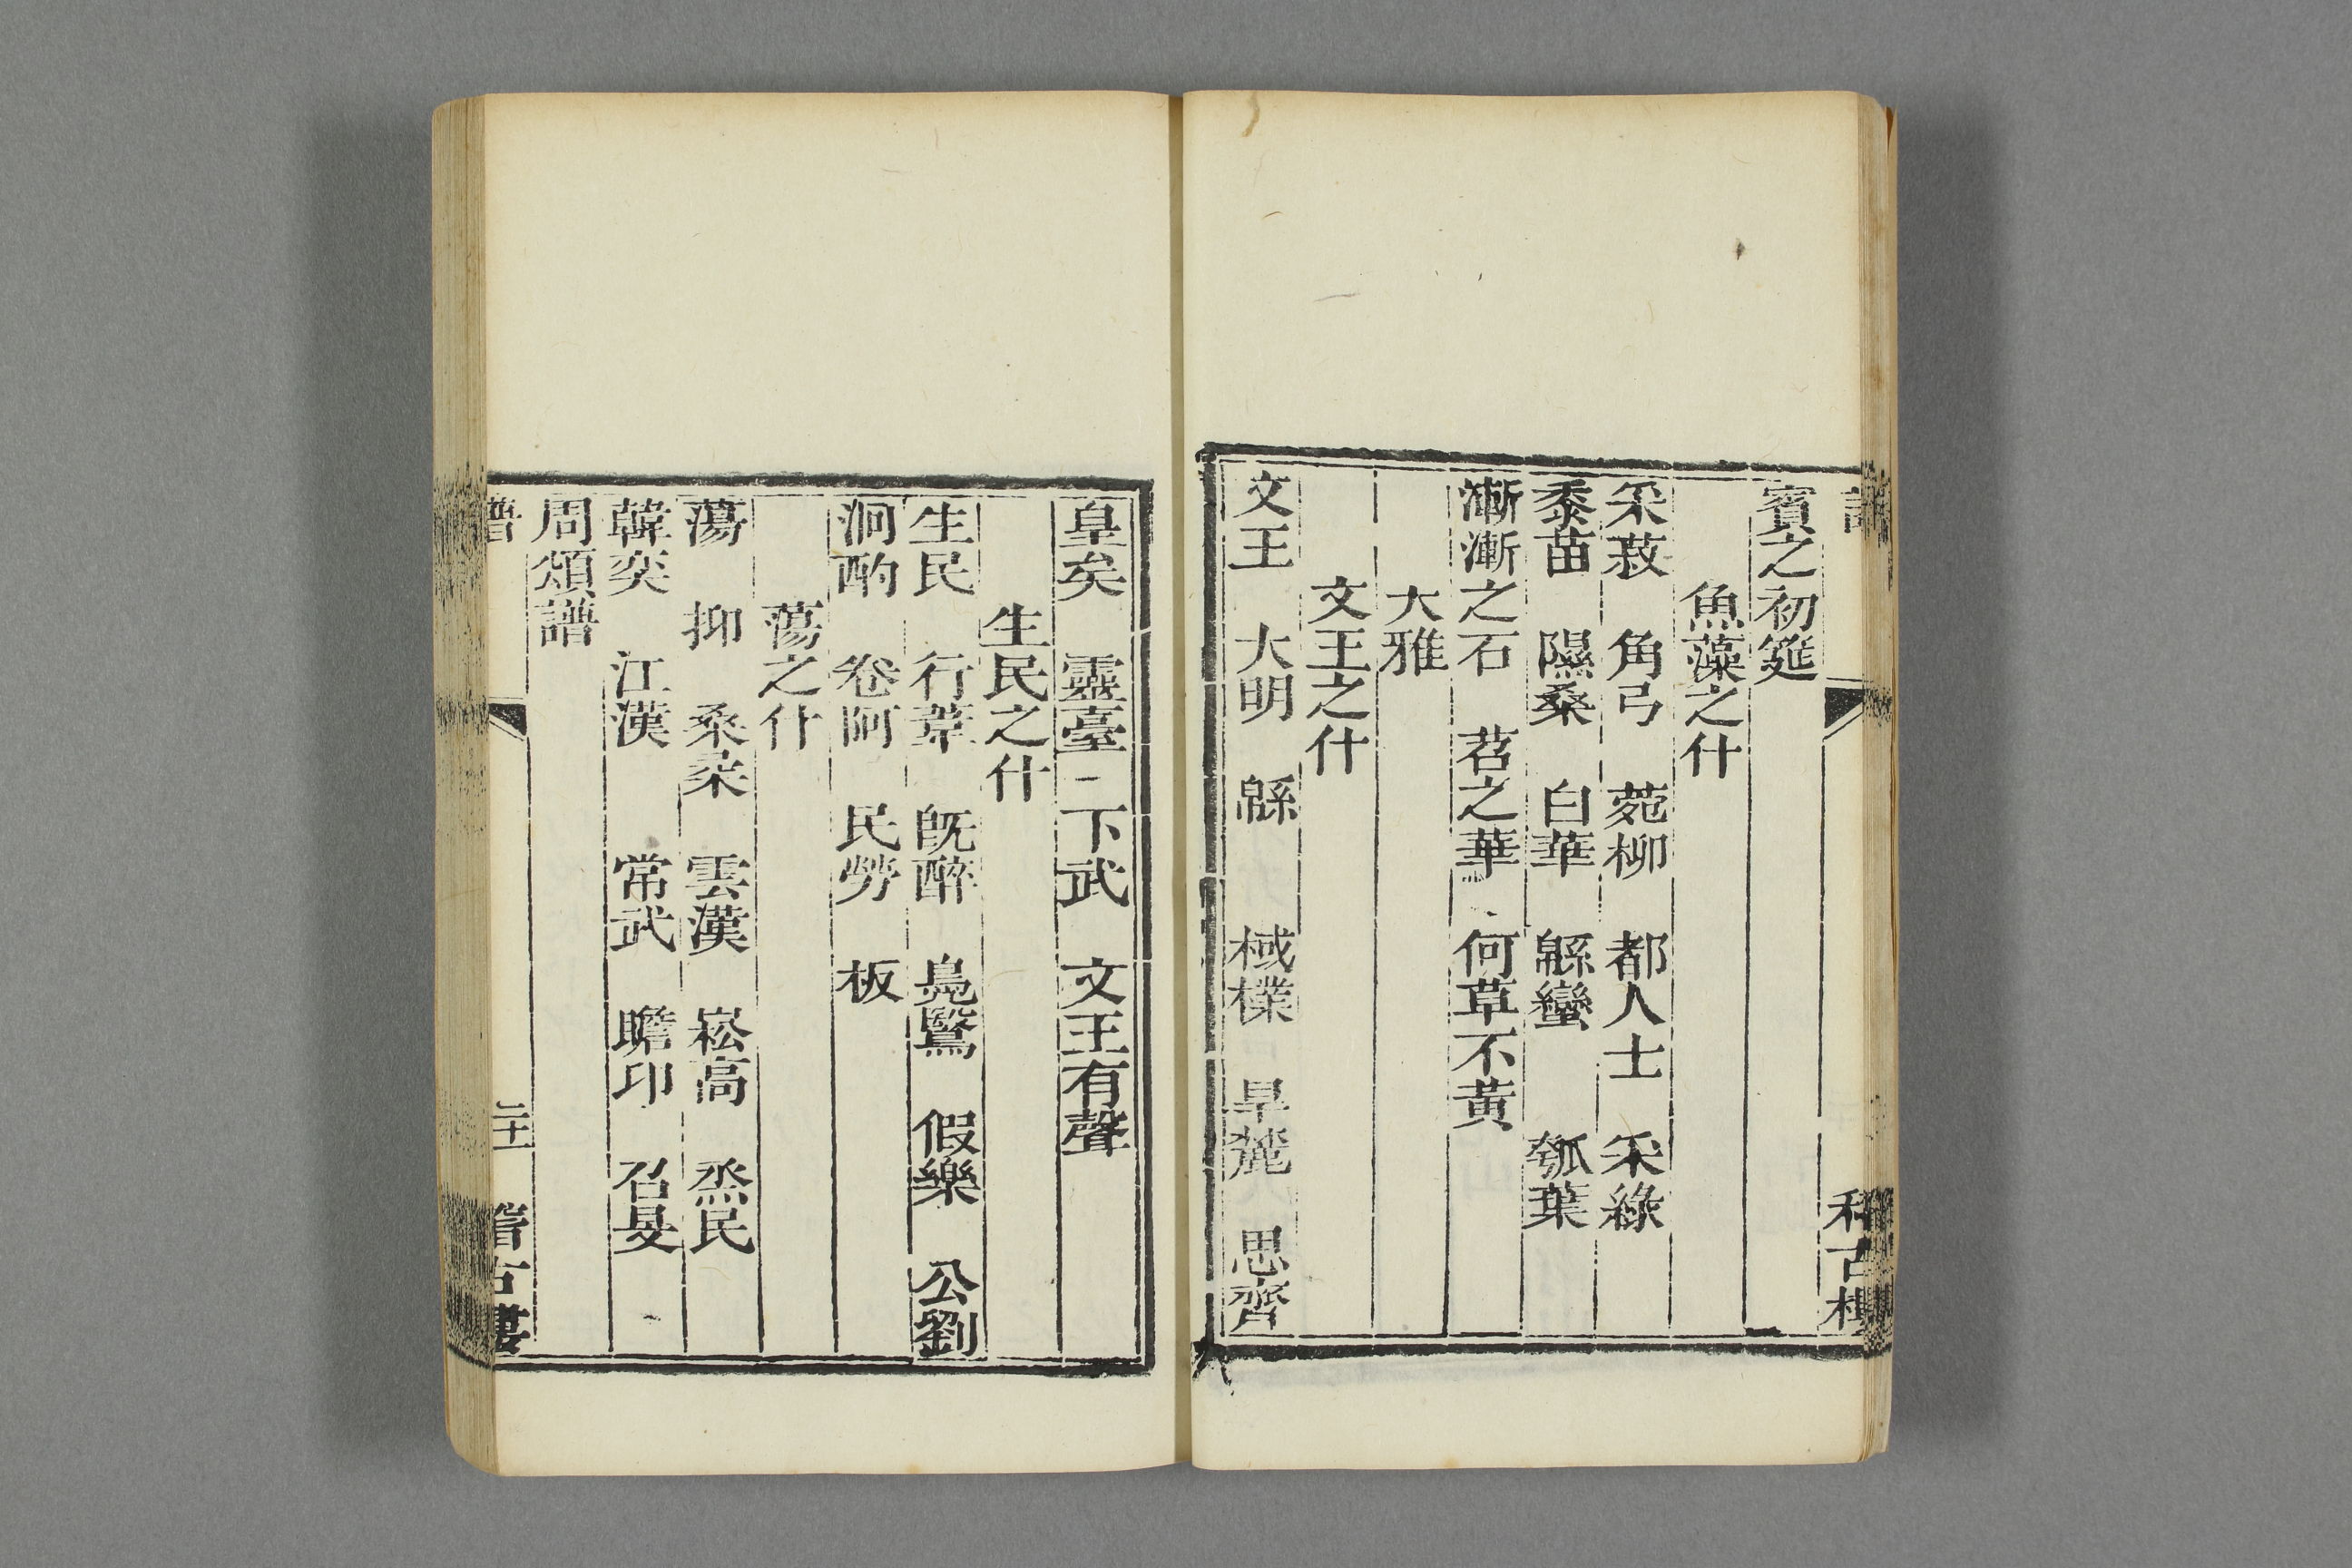 賓之初筵
魚藻之什
采菽 角弓 菀柳 都人士 采綠
黍苗 隰桑 白華 緜蠻 瓠葉
漸漸之石 苕之華 何草不黃
大雅
文王之什
文王 大明 緜 棫樸 旱麓 思齊
皇矣 靈臺 下武 文王有聲
生民之什
生民 行葦 旣醉 鳧鷖 假樂 公劉
泂酌 卷阿 民勞 板
蕩之什
蕩 抑 桑柔 雲漢 崧高 烝民
韓奕 江漢 常武 瞻卬 召旻
周頌譜